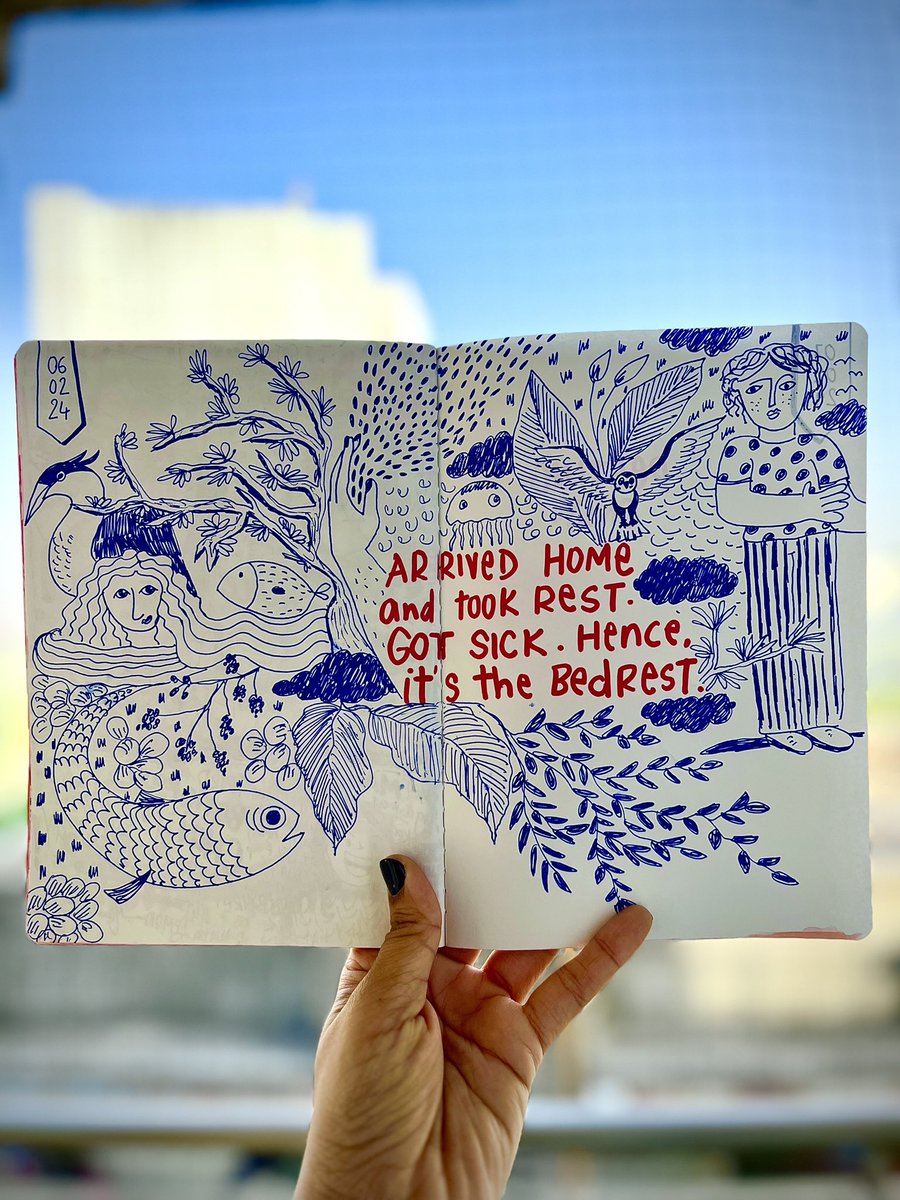 06
02
24
ARRIVED HOME
and took REST.
GOT SICK. Hence,
it's the BedREST.